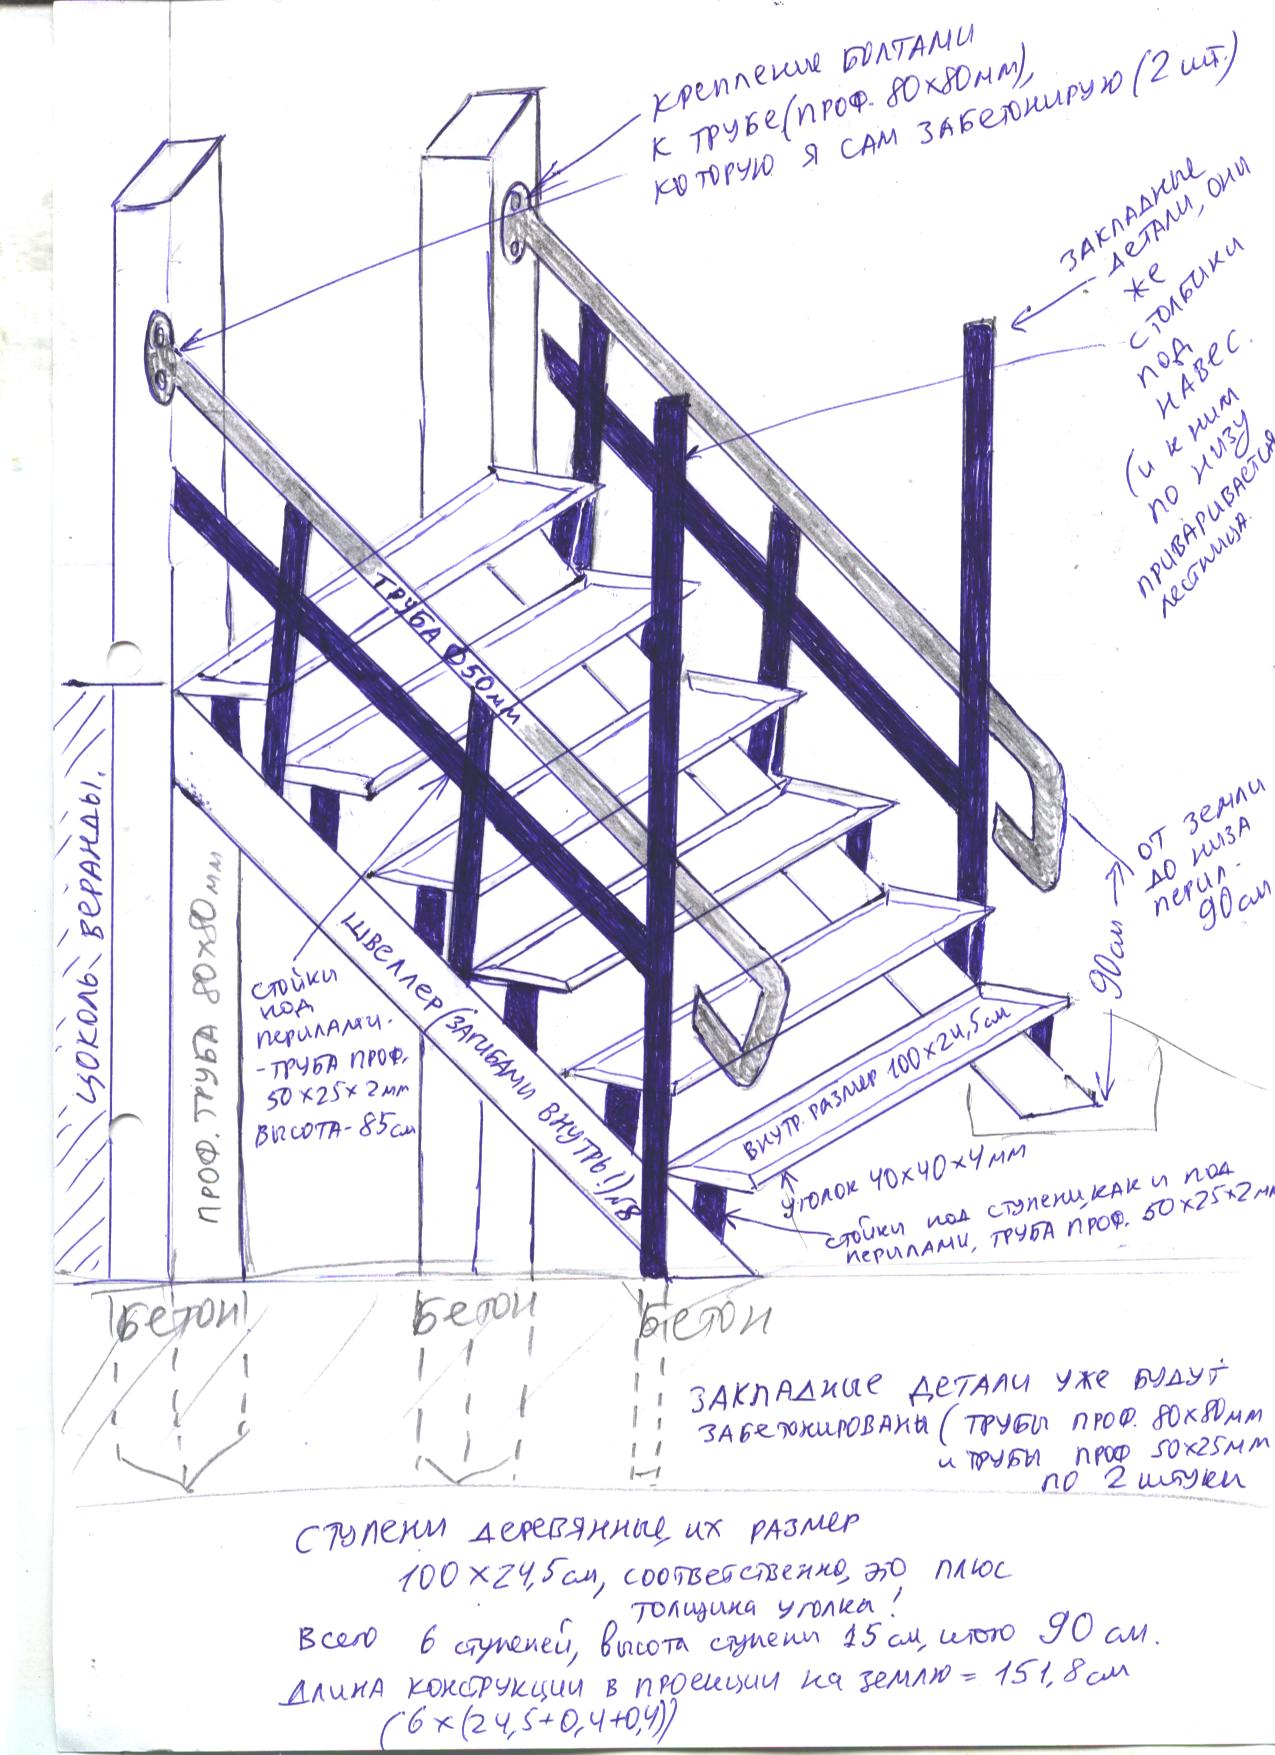 КРЕПЛЕНИЕ БОЛТАМИ
К ТРУБЕ (ПРОФ. 80х80мм),
КОТОРУЮ Я САМ ЗАБЕТОНИРУЮ (2 шт.)
ЗАКЛАДНЫЕ
ДЕТАЛИ, ОНИ
ЖЕ
СТОЛБИКИ
ПОД
НАВЕС.
(и к ним
по низу
ПРИВАРИВАЕТСЯ
лестница.
ТРУБА Ø50мм
ЦОКОЛЬ ВЕРАНДЫ.
ПРОФ. ТРУБА 80х80мм
СТОЙКИ
ПОД
ПЕРИЛАМИ-
-ТРУБА ПРОФ.
50х25х2мм
ВЫСОТА-85см
ШВЕЛЛЕР (ЗАГИБАМИ ВНУТРЬ!) №8
ОТ ЗЕМЛИ
ДО НИЗА
ПЕРИЛ-
90см
90см
ВНУТР. размер 100х24,5см
уголок 40х40х4мм
стойки под ступени, как и под
перилами, ТРУБА ПРОФ. 50х25х2мм
Бетон
Бетон
Бетон
ЗАКЛАДНЫЕ ДЕТАЛИ УЖЕ БУДУТ
ЗАБЕТОНИРОВАНЫ (ТРУБЫ ПРОФ. 80х80мм
и ТРУБЫ ПРОФ 50х25мм
ПО 2 штуки
СТУПЕНИ ДЕРЕВЯННЫЕ, ИХ РАЗМЕР
100х24,5см, соответственно, это плюс
толщина уголка!
Всего 6 ступеней, высота ступени 15см, итого 90см.
ДЛИНА КОНСТРУКЦИИ В ПРОЕКЦИИ НА ЗЕМЛЮ = 151,8см
(6х(24,5+0,4+0,4))